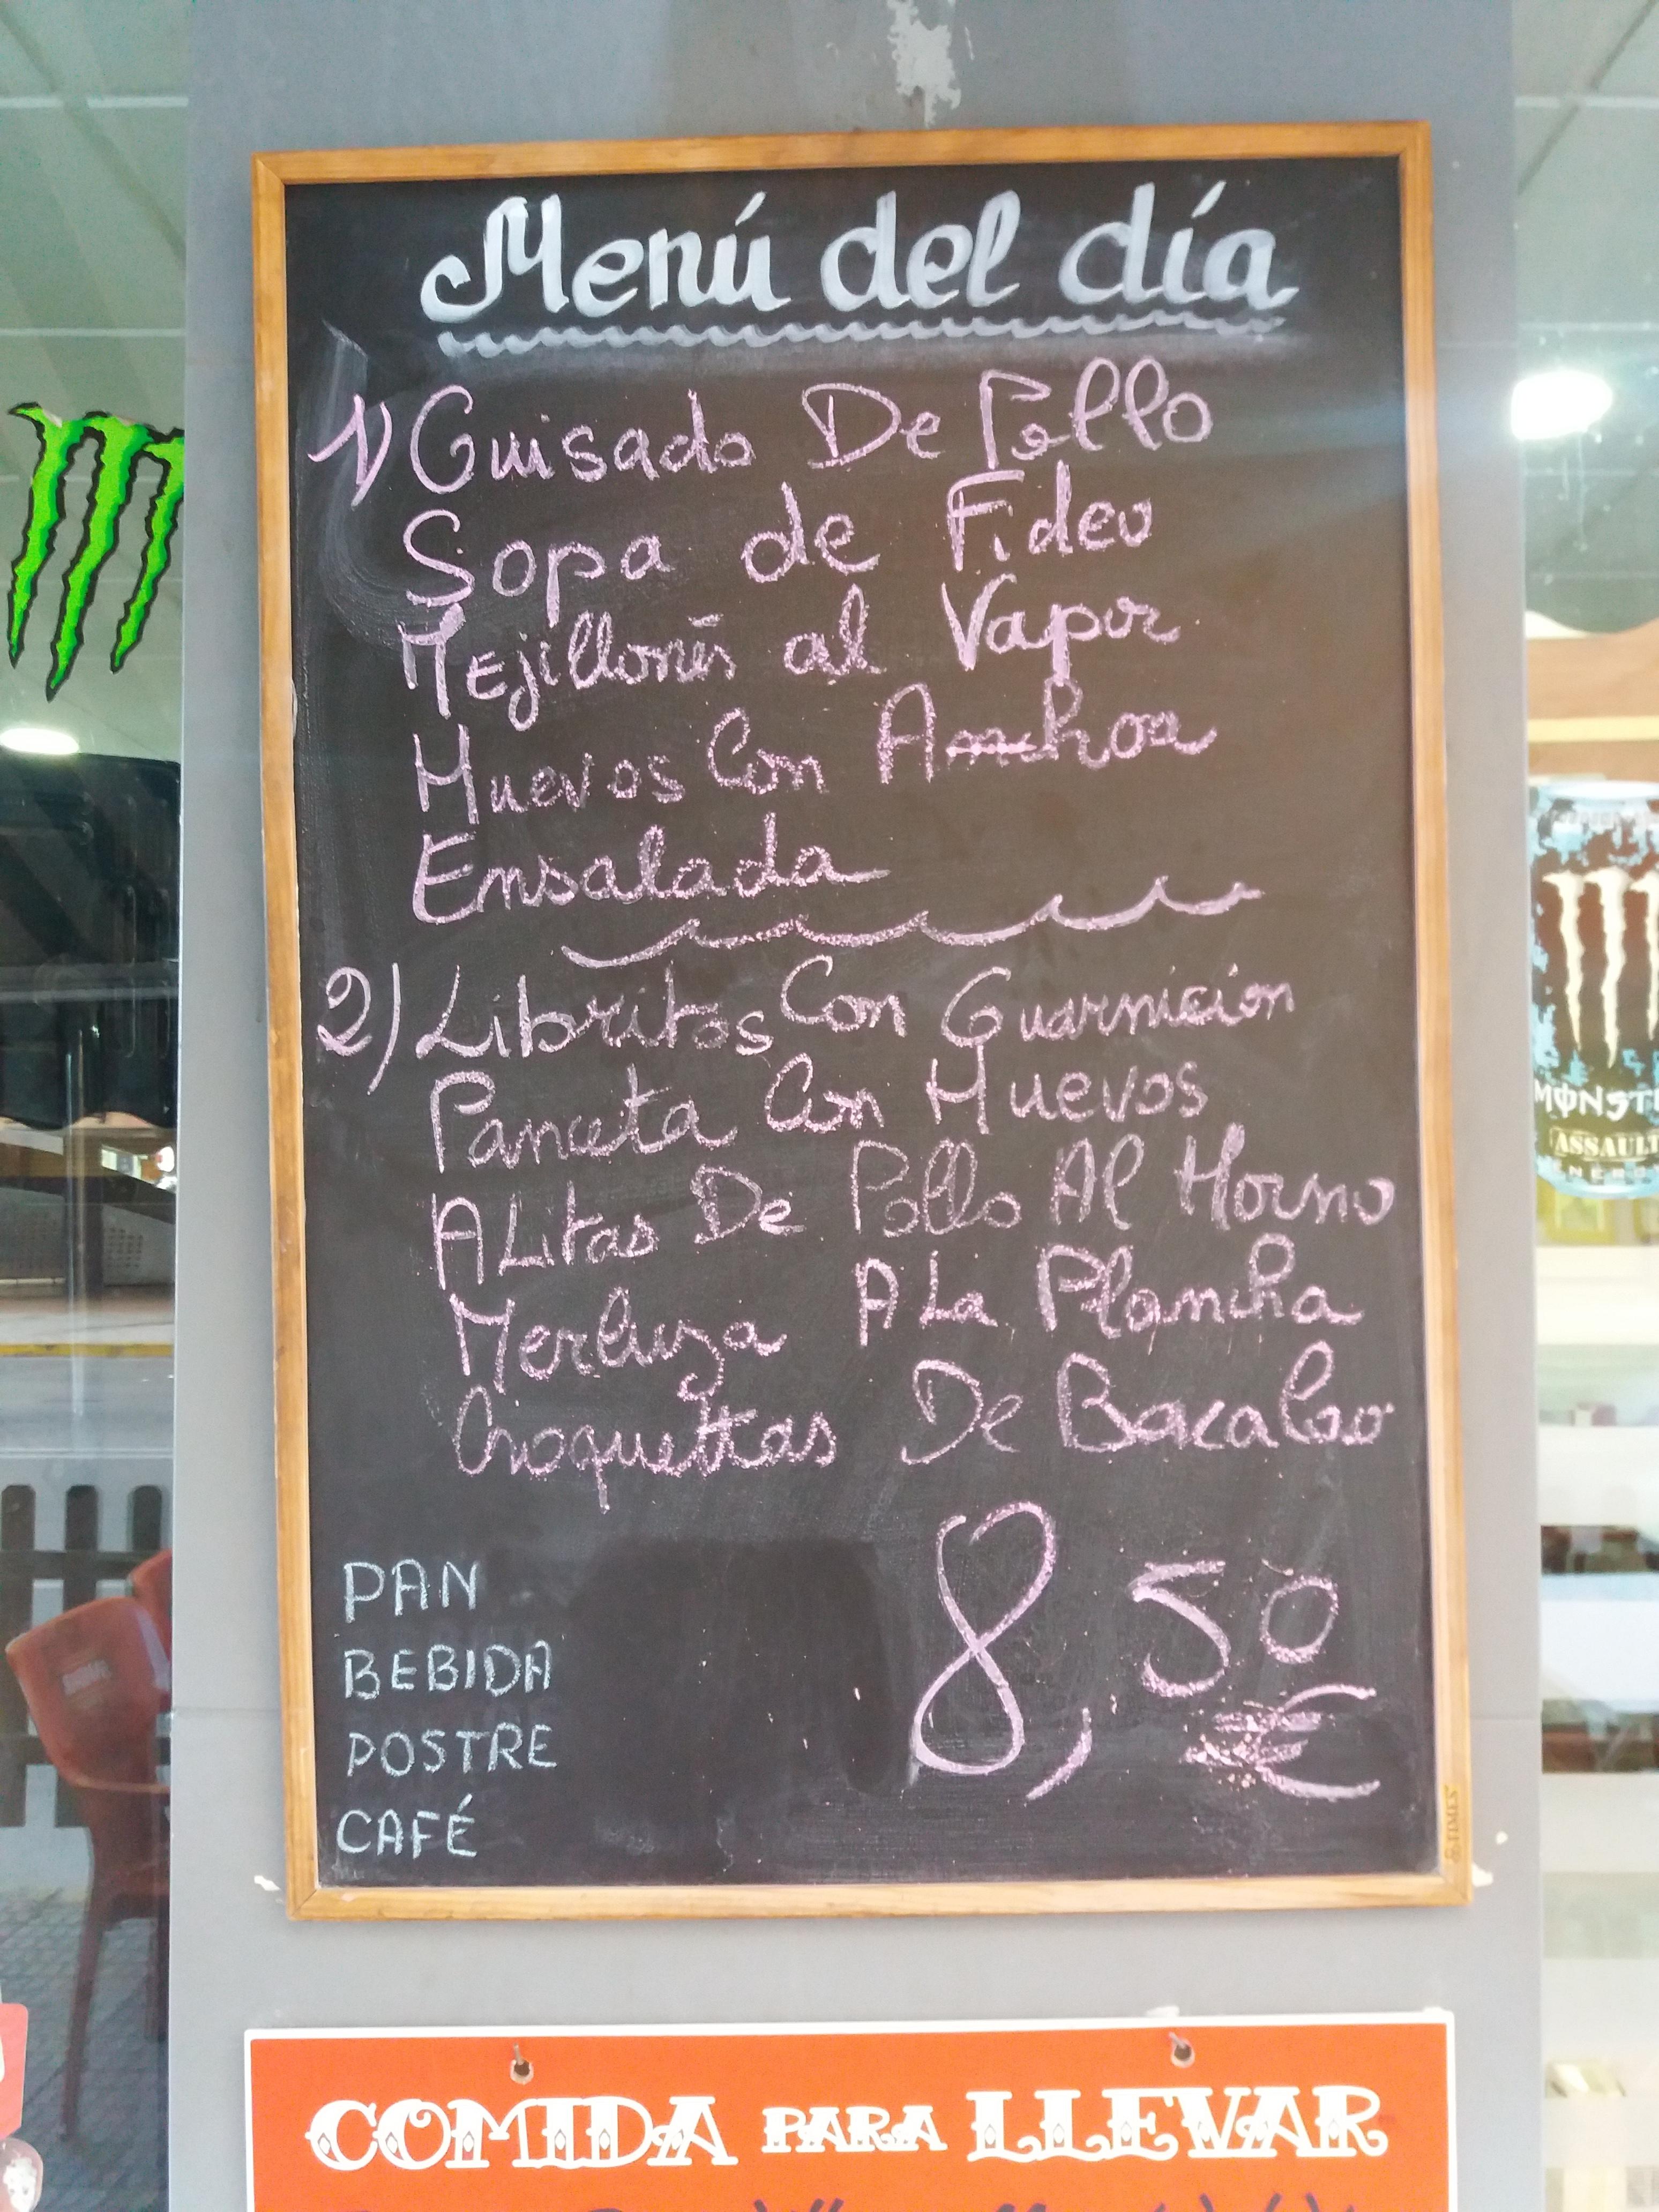 Menú del día
1) Guisado De Pollo
Sopa de Fideo
Mejillones al Vapor
Huevos Con Anchoa
Ensalada
2) Libritos Con Guarnicion
Panceta Con Huevos
Alitas De Pollo Al Horno
Merluza A La Plancha
Croquettas De Bacalao
8,50
€
PAN
BEBIDA
POSTRE
CAFÉ
TIMES
COMIDA PARA LLEVAR
MONST
ASSAULT